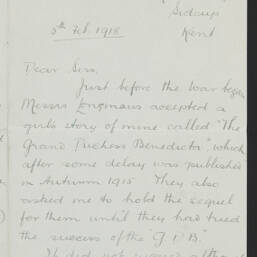 Sidcup
Kent
5th Feb. 1918
Dear Sirs,
Just before the War began
Messrs Longmans accepted a
girls story of mine called "The
Grand Duchess Benedicta", which
after some delay was published
in Autumn 1915. They also
asked me to hold the sequel
for them until they had tried
the success of the "G.D.B."
It did not